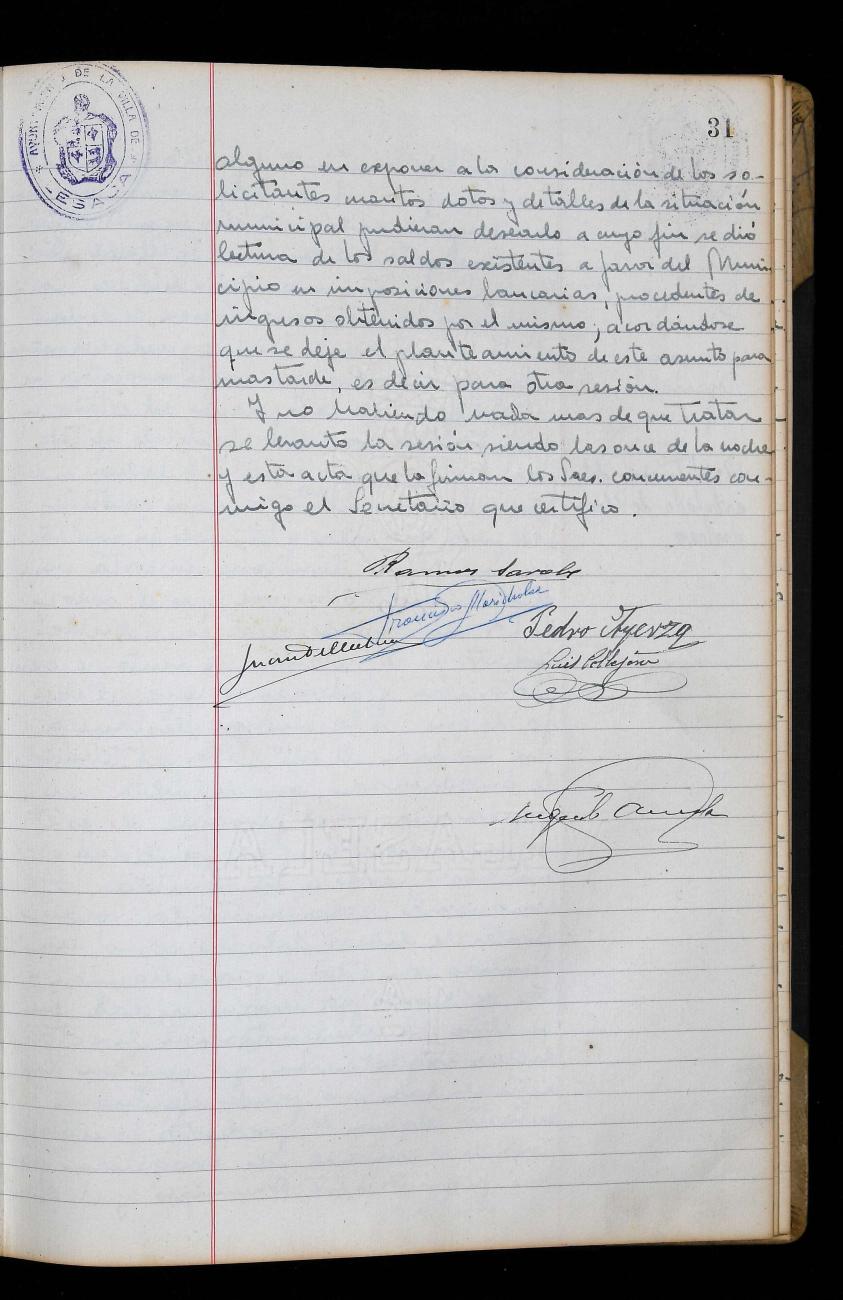 AYUNTAMIENTO DE LA VILLA DE LESACA
31
alguno en exponer a la consideración de los so-
licitantes cuantos datos y detalles de la situación
municipal pudieran desearlo a cuyo fin se dió
lectura de los saldos existentes a favor del Muni-
cipio en imposiciones bancarias, procedentes de
ingresos obtenidos por el mismo, acordándose
que se deje el planteamiento de este asunto para
mas tarde, es decir para otra sesión.
Y no habiendo nada mas de que tratar
se levanto la sesión siendo las once de la noche
y esta acta que la firman los Sres. concurrentes con-
migo el Secretario que certifico.
Ramos
Francisco
Pedro Ayerza
Juan
Luis